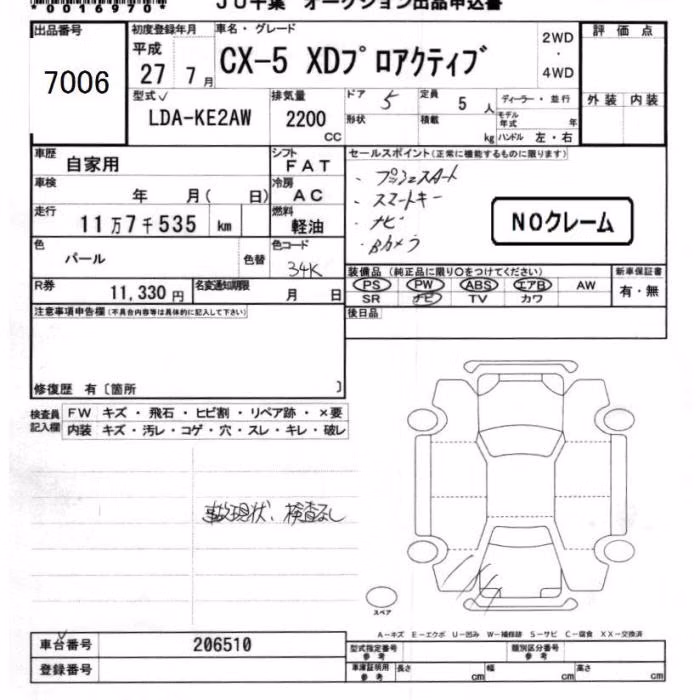 *00016970*
JU千葉 オークション出品申込書
出品番号
7006
初度登録年月
平成
27 7月
車名・グレード
CX-5 XDプロアクティブ
2WD
・
4WD
評価点
外装 内装
型式
LDA-KE2AW
排気量
2200
CC
ドア 5
定員 5 人
ディーラー・並行
形状
積載 kg
モデル年式 年
ハンドル 左・右
車歴
自家用
シフト
FAT
セールスポイント(正常に機能するものに限ります)
・プッシュスタート
・スマートキー
・ナビ
・Bカメラ
NOクレーム
車検
年 月( 日)
冷房
AC
走行
11万7千535 km
燃料
軽油
色
パール
色替
色コード
34K
装備品(純正品に限り○をつけてください)
PS PW ABS エアB AW
SR ナビ TV カワ
新車保証書
有・無
R券
11,330円
名変通知期限
月 日
後日品
注意事項申告欄(不具合内容等は具体的に記入して下さい)
修復歴 有〔箇所 〕
検査員
記入欄
FW キズ・飛石・ヒビ割・リペア跡・×要
内装 キズ・汚レ・コゲ・穴・スレ・キレ・破レ
事故現状、検査なし
スペア
A-キズ E-エクボ U-凹み W-補修跡 S-サビ C-腐食 XX-交換済
車台番号
206510
登録番号
型式指定番号
参考
類別区分番号
参考
車庫証明用
参考
長さ cm
幅 cm
高さ cm